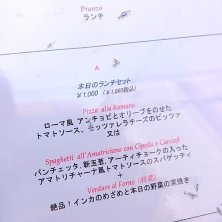 Pranzo
ランチ
A
本日のランチセット
¥1,000 (¥1,080税込)
Pizza alla Romana
ローマ風 アンチョビとオリーブをのせた
トマトソース、モッツァレラチーズのピッツァ
又は
Spaghetti all'Amatriciana con Cipolla e Carciofi
パンチェッタ、新玉葱、アーティチョークの入った
アマトリチャーナ風トマトソースのスパゲッティ
+
Verdure al Forno (前菜)
絶品！インカのめざめと本日の野菜の窯焼き